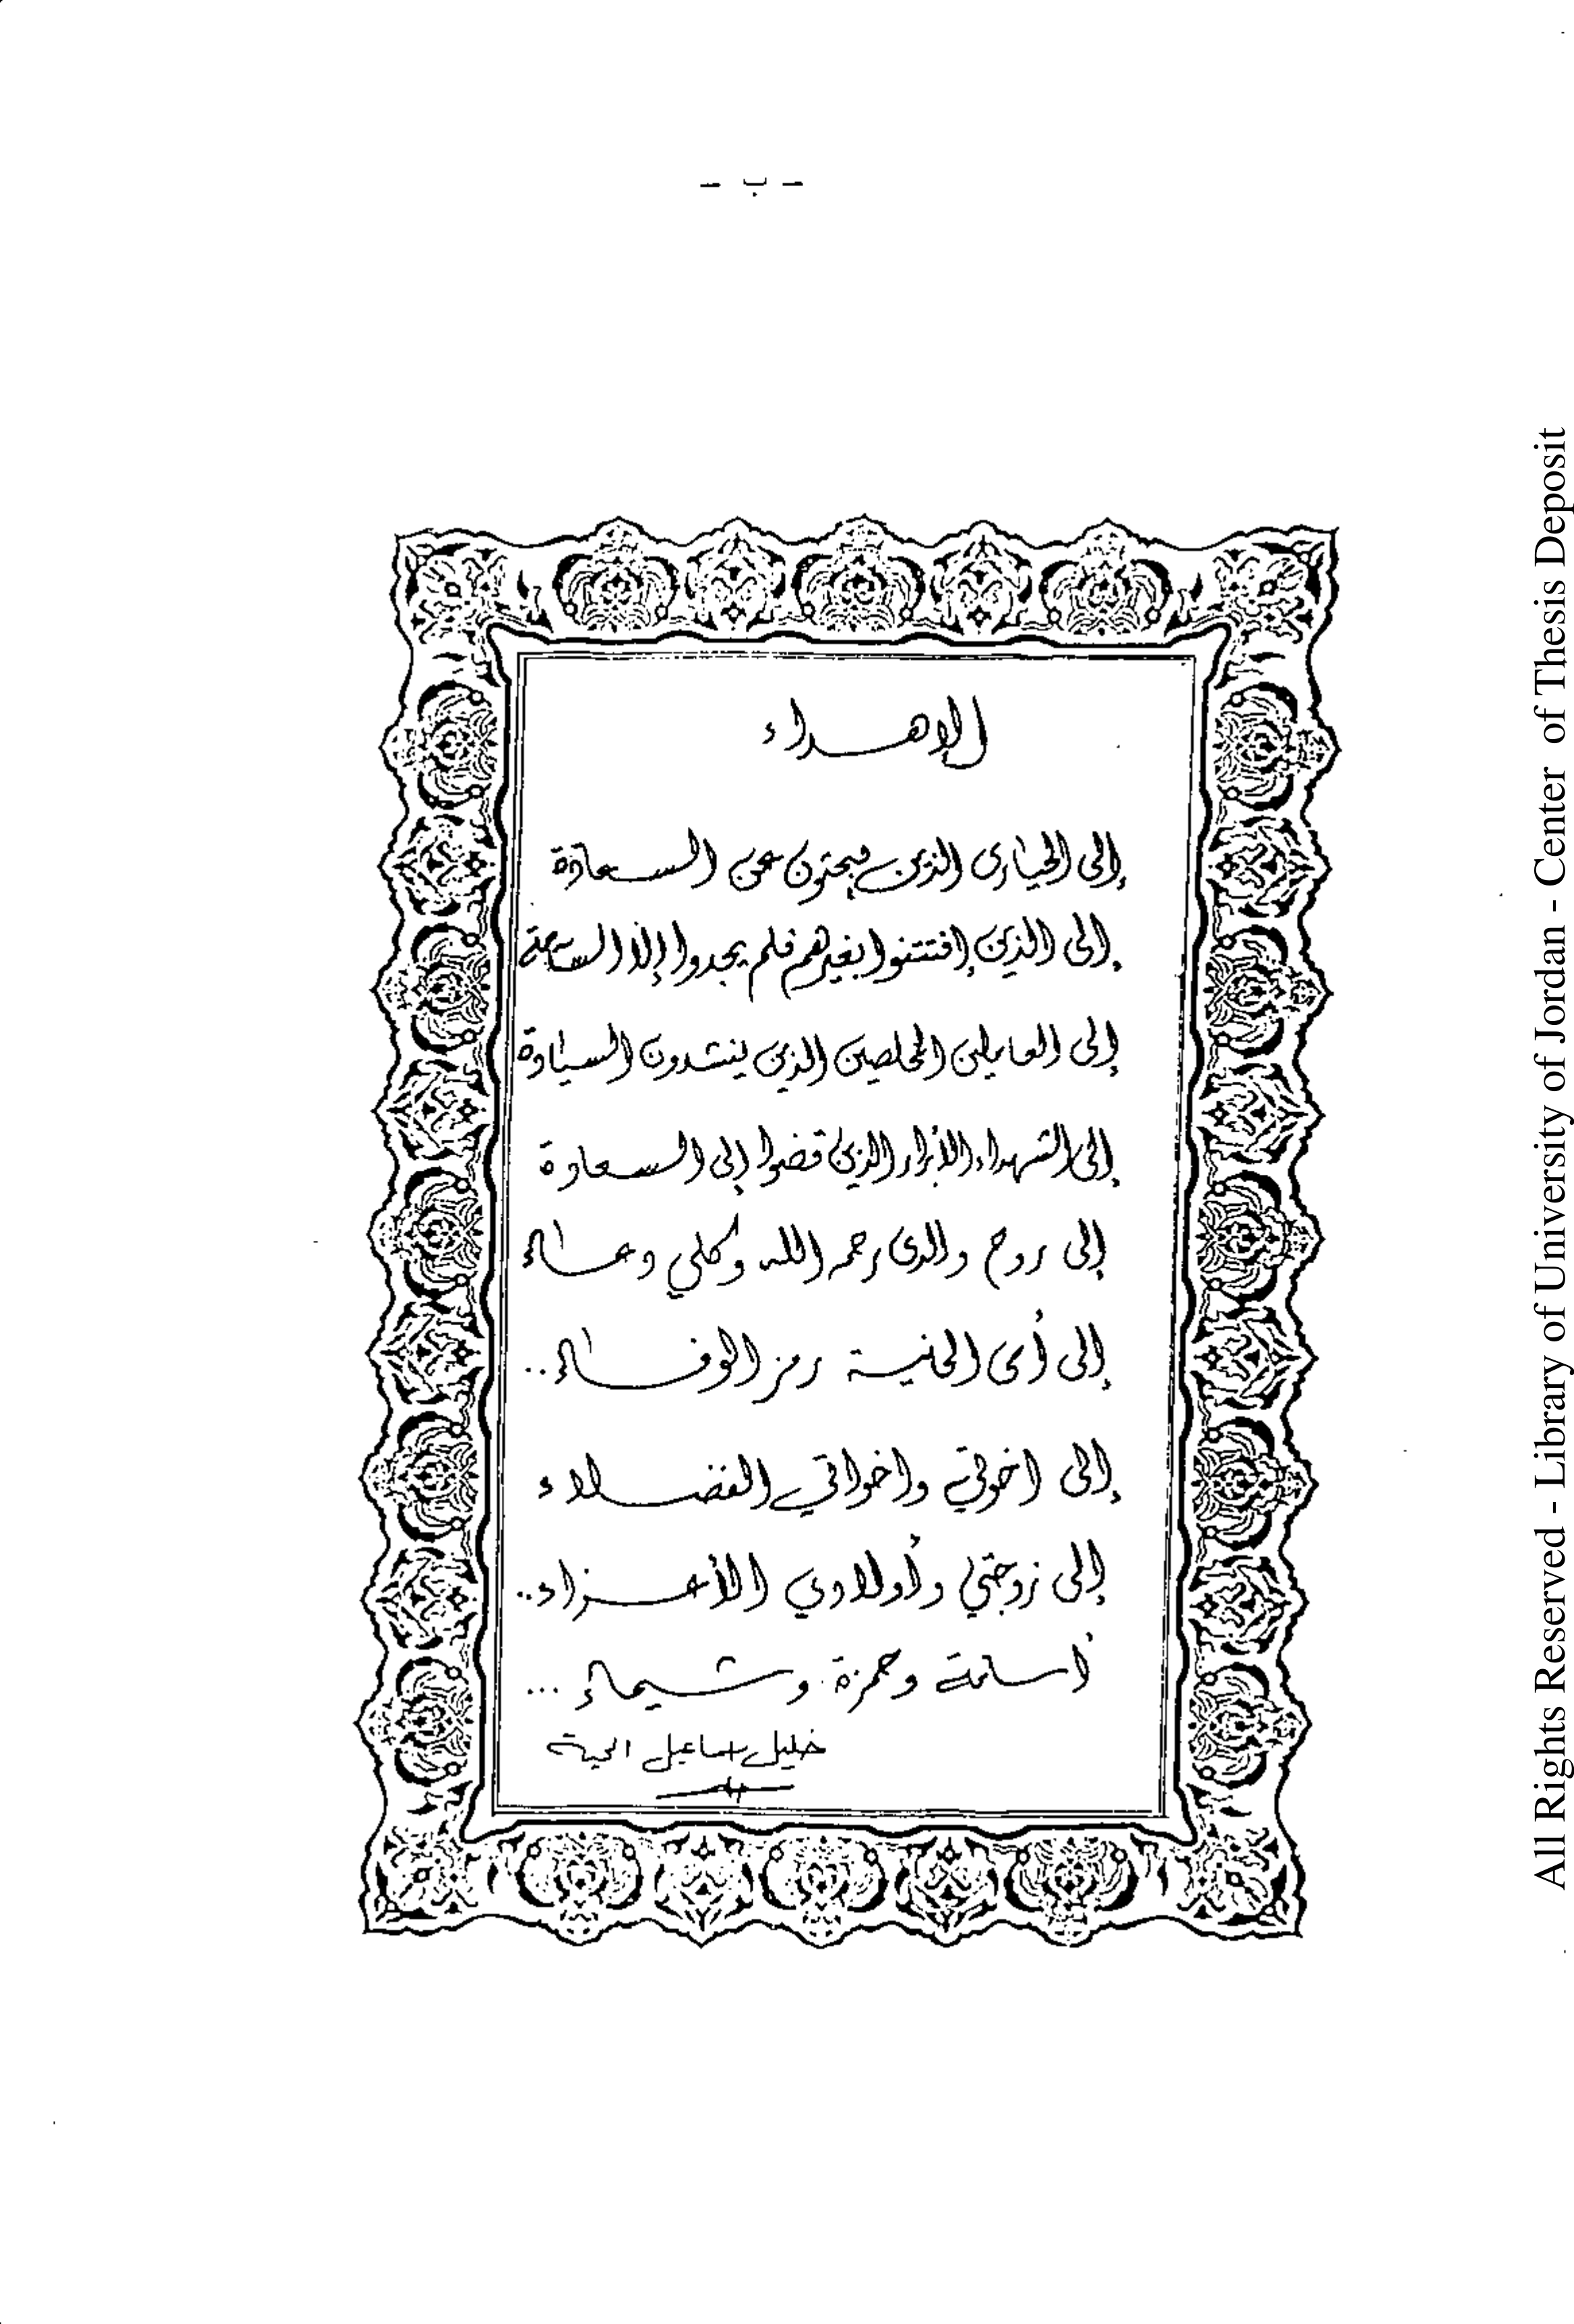 - ب -
الإهداء
إلى الحيارى الذين يبحثون عن السعادة
إلى الذين إفتتنوا بغيرهم فلم يجدوا إلا السآمة
إلى العاملين المخلصين الذين ينشدون السيادة
إلى الشهداء الأبرار الذين قضوا إلى السعادة
إلى روح والدي رحمه الله وكلي دعاء
إلى أمي الحنينة رمز الوفاء ..
إلى اخوتي واخواتي الفضلاء
إلى زوجتي وأولادي الأعزاء ..
أسامة وحمزة وشيماء ...
خليل إسماعيل الحية
All Rights Reserved - Library of University of Jordan - Center of Thesis Deposit